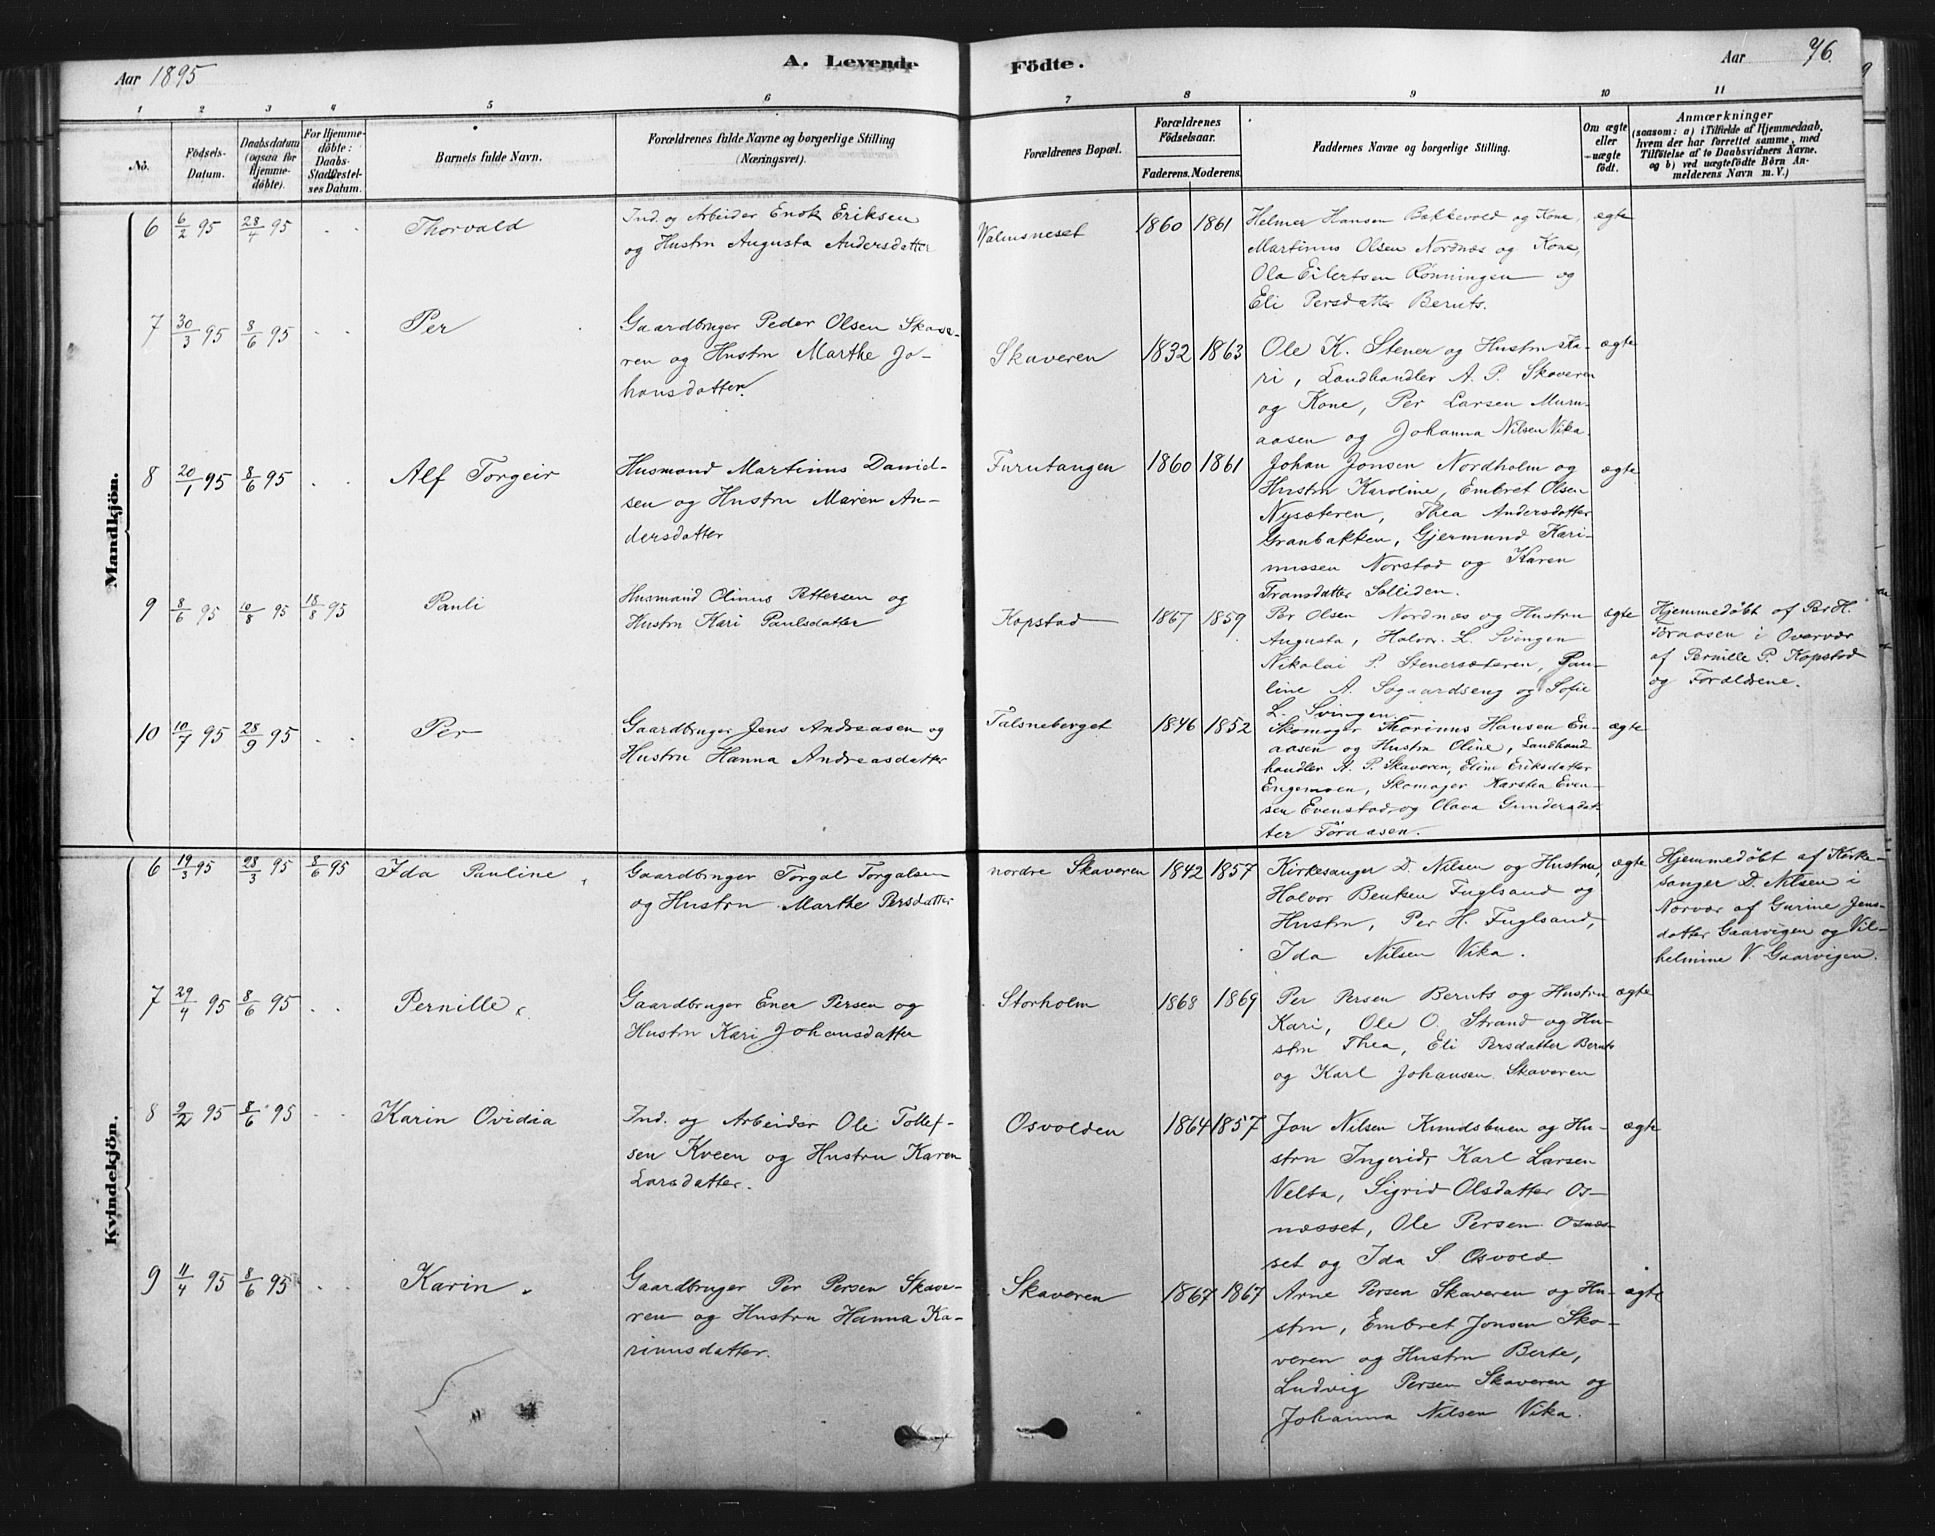 Aar 1895
A. Levende
Födte.
Aar
76
1 2 3 4 5 6 7 8 9 10 11
No.
Födsels-
Datum.
Daabsdatum
(ogsaa for
Hjemme-
döbte).
For Hjemme-
döbte:
Daabs-
Stadfæstel-
ses Datum.
Barnets fulde Navn.
Forældrenes fulde Navne og borgerlige Stilling
(Næringsvei).
Forældrenes Bopæl.
Forældrenes
Födselsaar.
Faderens. Moderens.
Faddernes Navne og borgerlige Stilling.
Om ægte
eller
uægte
födt.
Anmærkninger
(saasom: a) i Tilfælde af Hjemmedaab,
hvem der har forrettet samme, med
Tilföielse af to Daabsvidners Navne,
og b) ved uægtefödte Börn An-
melderens Navn m. V.)
Mandkjön.
6 6/2 95 28/4 95 Thorvald
Ind. og Arbeider Enok Eriksen
og Hustru Augusta Andersdatter
Malmsneset 1860 1861
Helmer Hansen Bakkevold og Kone,
Martinus Olsen Nordnæs og Kone,
Ola Eilertsen Rønningen og
Eli Persdatter Beruts.
ægte
7 30/3 95 8/6 95 Per
Gaardbruger Peder Olsen Skave-
ren og Hustru Marthe Jo-
hansdatter.
Skaveren 1832 1863
Ole K. Stener og Hustru Ka-
ri, Landhandler A. P. Skaveren
og Kone, Per Larsen Muru-
aasen og Johanna Nilsen Vika.
ægte
8 20/1 95 8/6 95 Alf Torgeir
Husmand Martinus Daniel-
sen og Hustru Maren An-
dersdatter
Furutangen 1860 1861
Johan Jonsen Nordholm og
Hustru Karoline, Embret Olsen
Nysæteren, Thea Andersdatter
Granbakken, Gjermund Kari-
nussen Norstad og Karen
Fransdatter Solliden.
ægte
9 8/6 95 10/8 95 18/8 95 Pauli
Husmand Olinus Pettersen og
Hustru Kari Paulsdatter
Kopstad 1867 1859
Per Olsen Nordnæs og Hustru
Augusta, Halvor L. Svingen
Nikolai P. Stenersæteren, Pau-
line A. Søgaardseng og Sofie
L. Svingen.
ægte
Hjemmedøbt af Per H.
Føraasen i Overvær
af Pernille P. Kopstad
og Forældrene.
10 10/7 95 28/9 95 Per
Gaardbruger Jens Andreasen og
Hustru Hanna Andreasdatter
Falsneberget 1846 1852
Skomager Thorinus Hansen En-
aasen og Hustru Oline, Landhand
handler A. P. Skaveren, Eline Eriksdatter
Engemoen, Skomager Karsten Even-
sen Evenstad og Olava Gundersdat-
ter Føraasen.
ægte
Kvindekjön.
6 19/3 95 28/3 95 8/6 95 Ida Pauline
Gaardbruger Torgal Torgalsen
og Hustru Marthe Persdatter
nordre Skaveren 1842 1857
Kirkesanger D. Nilsen og Hustru,
Halvor Bentsen Fuglsand og
Hustru, Per H. Fuglsand,
Ida Nilsen Vika.
ægte
Hjemmedøbt af Kirke-
sanger D. Nilsen i
Nærvær af Gurine Jens-
datter Gaarvigen og Vil-
helmine V. Gaarvigen.
7 29/4 95 8/6 95 Pernille
Gaardbruger Ener Persen og
Hustru Kari Johansdatter
Storholm 1868 1869
Per Persen Beruts og Hustru
Kari, Ole O. Strand og Hu-
stru Thea, Eli Persdatter Beruts
og Karl Johansen Skaveren
ægte
8 9/2 95 8/6 95 Karin Ovidia
Ind. og Arbeider Ole Tollef-
sen Kveen og Hustru Karen
Larsdatter.
Osvolden 1864 1857
Jon Nilsen Kundsbuen og Hu-
stru Ingerid, Karl Larsen
Velta, Sigrid Olsdatter Os-
næsset, Ole Persen Osnæs-
set og Ida S Osvold
ægte
9 11/4 95 8/6 95 Karin
Gaardbruger Per Persen Skave-
ren og Hustru Hanna Ka-
rinusdatter.
Skaveren 1867 1867
Arne Persen Skaveren og Hu-
stru, Embret Jonsen Ska-
veren og Hustru Berte,
Ludvig Persen Skaveren og
Johanna Nilsen Vika.
ægte